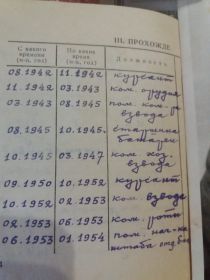 III. ПРОХОЖДЕ
С какого времени (м-ц, год) По какое время (м-ц, год) Должность
08.1942 11.1942 курсант
11.1942 03.1943 ком. орудия
03.1943 08.1945 пом. ком. взвода
08.1945 10.1945. старшина батареи
10.1945 03.1947 ком. хоз. взвода
09.1950 10.1952 курсант
10.1952 02.1953 ком. взвода
02.1953 06.1953 ком. роты
06.1953 01.1954 пом. нач-ка штаба